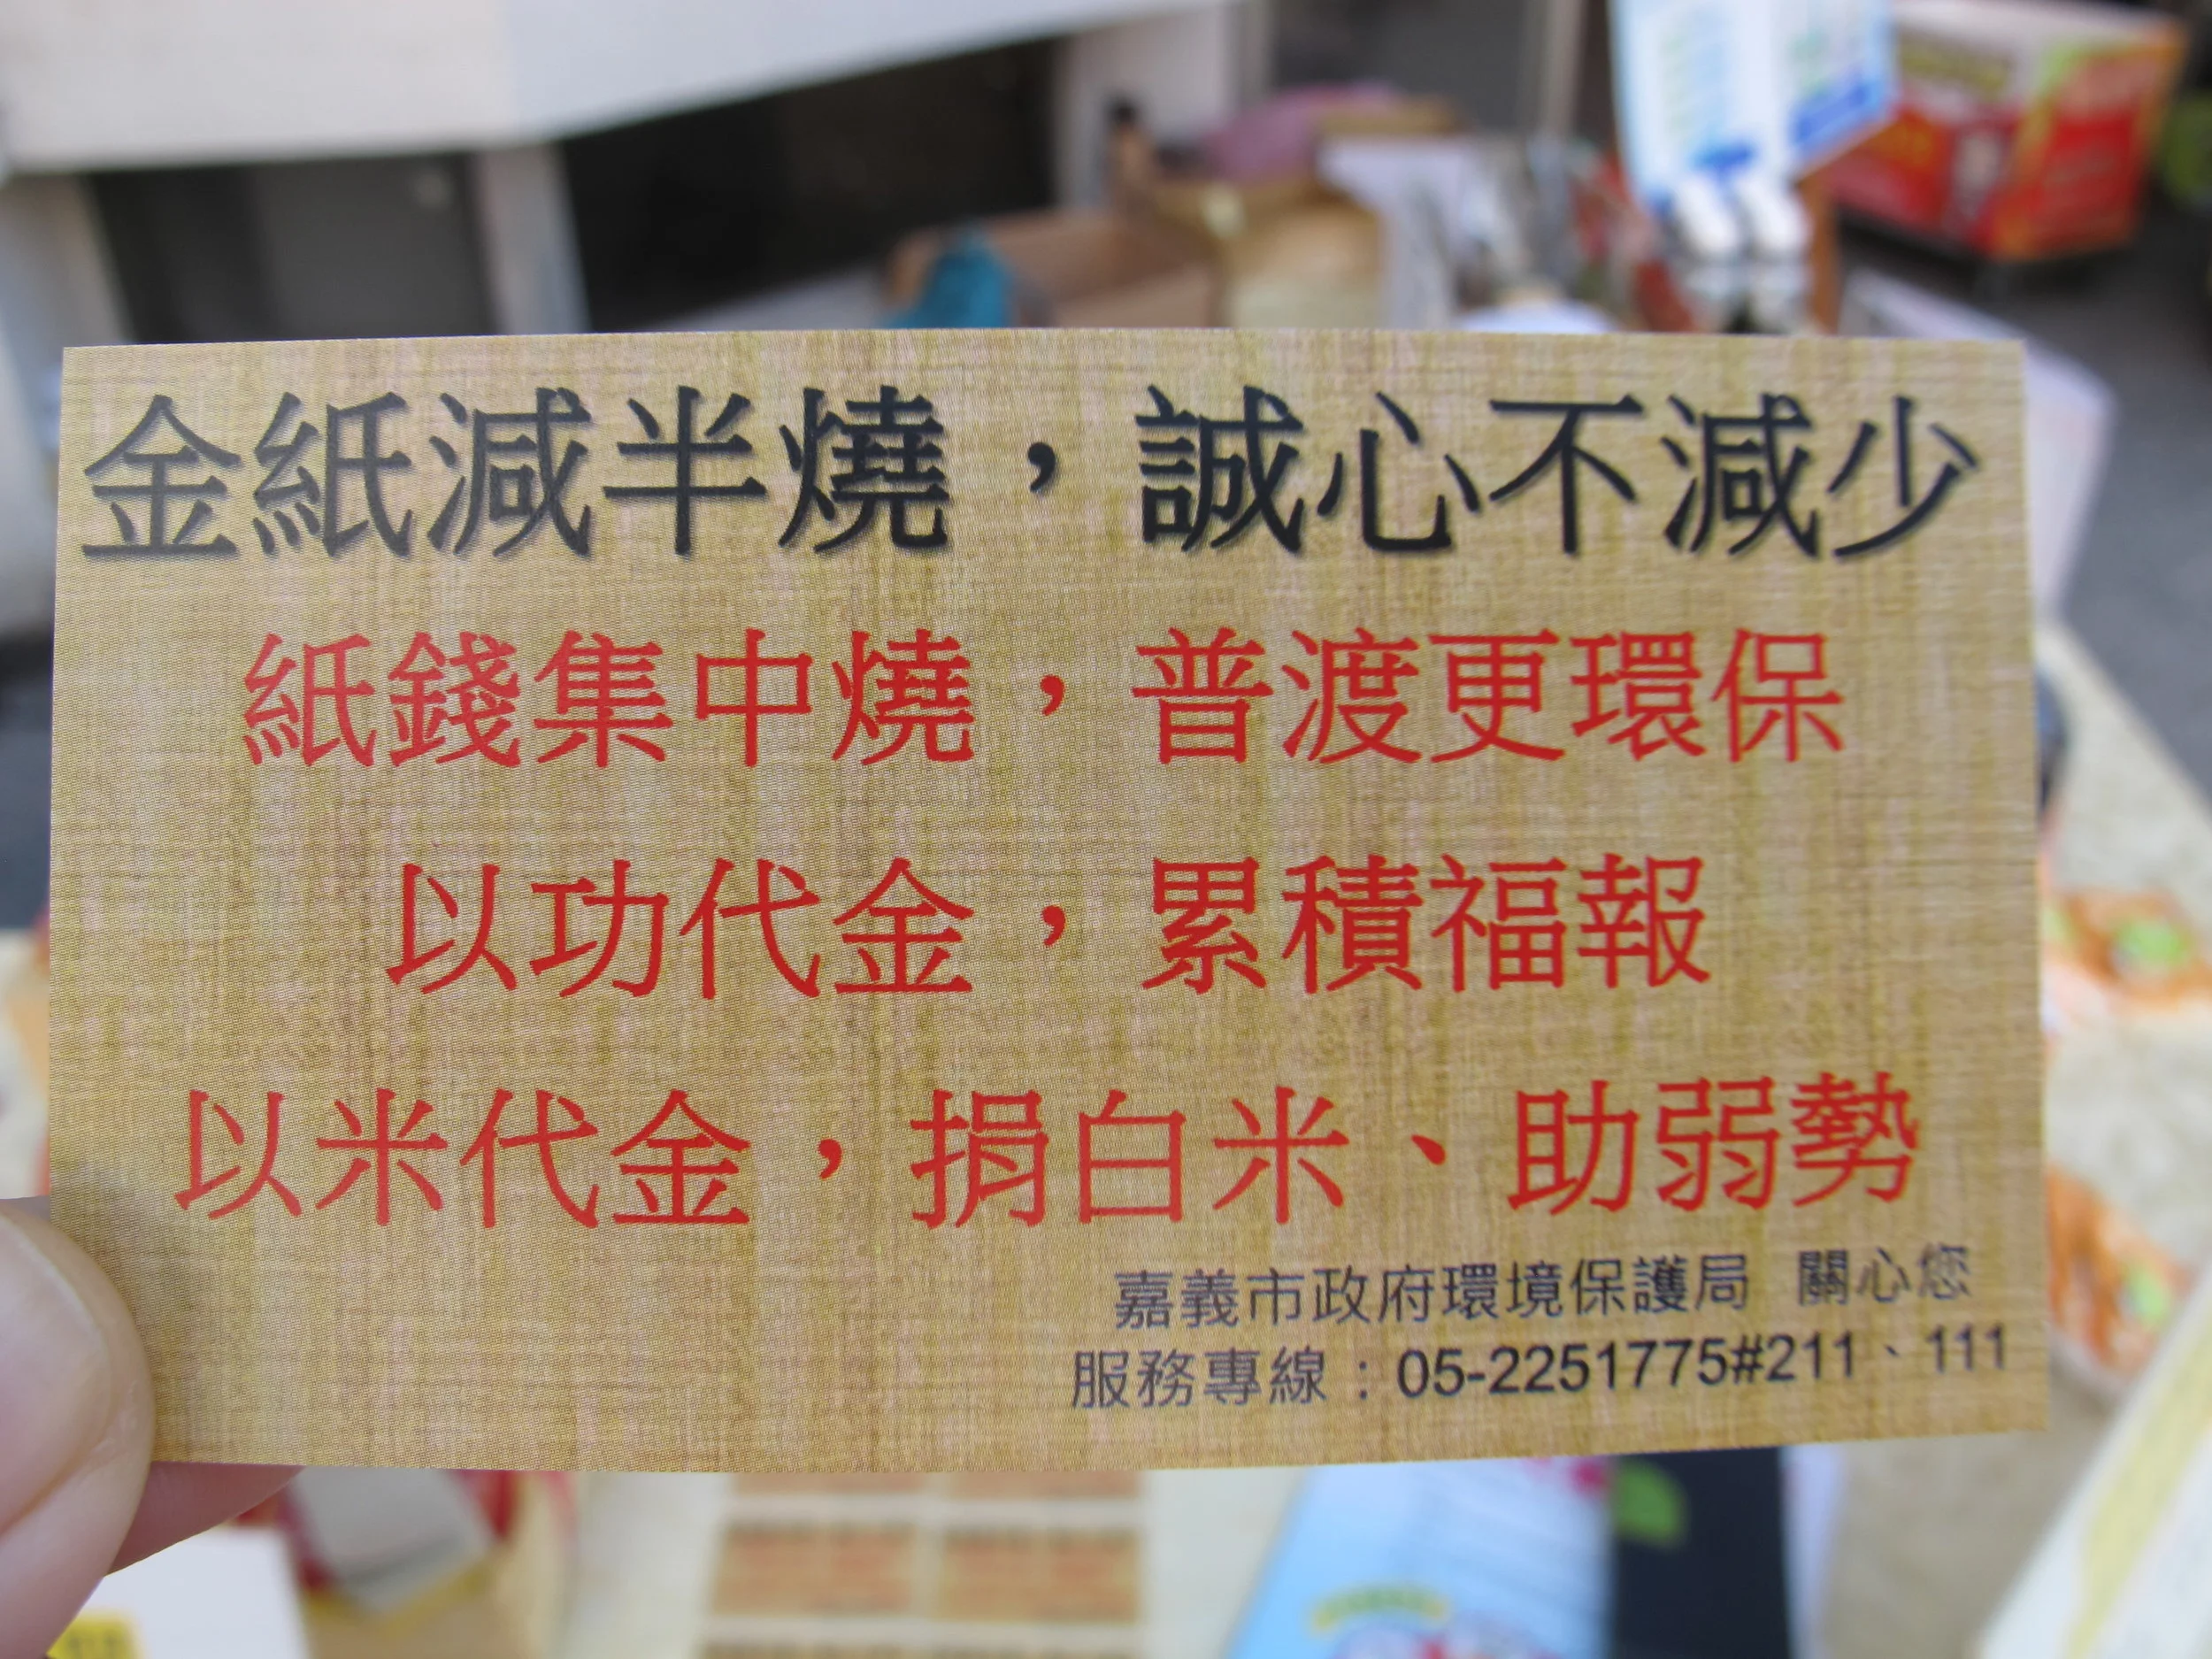 金紙減半燒，誠心不減少
紙錢集中燒，普渡更環保
以功代金，累積福報
以米代金，捐白米、助弱勢
嘉義市政府環境保護局 關心您
服務專線：05-2251775#211、111